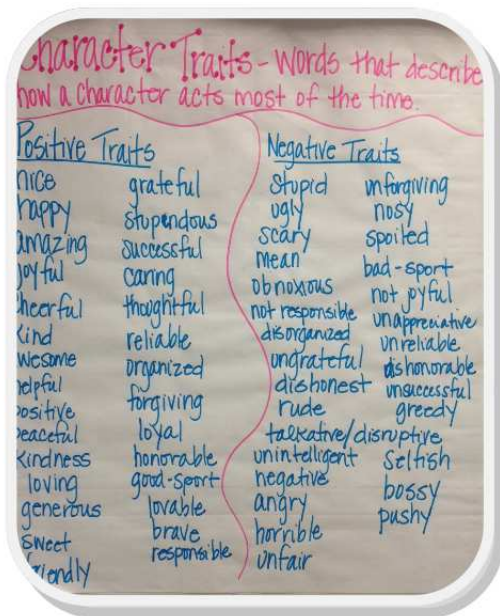 Character Traits - Words that describe
how a character acts most of the time.
Positive Traits
nice
happy
amazing
joyful
cheerful
kind
awesome
helpful
positive
peaceful
kindness
loving
generous
sweet
friendly
grateful
stupendous
successful
caring
thoughtful
reliable
organized
forgiving
loyal
honorable
good-sport
lovable
brave
responsible
Negative Traits
stupid
ugly
scary
mean
obnoxious
not responsible
disorganized
ungrateful
dishonest
rude
talkative/disruptive
unintelligent
negative
angry
horrible
unfair
unforgiving
nosy
spoiled
bad-sport
not joyful
unappreciative
unreliable
dishonorable
unsuccessful
greedy
selfish
bossy
pushy